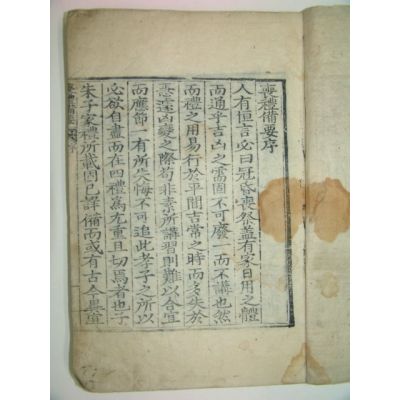 喪禮備要序
人有恒言必曰冠昏喪祭蓋有家日用之體
而通乎吉凶之需固不可廢一而不講也然
而禮之用易行於平閒吉常之時而多失於
悤遽凶變之際苟非素所講習則難以合宜
而應節一有所失悔不可追此孝子之所以
必欲自盡而在四禮爲尤重且切焉者也子
朱子家禮所載固已詳備而或有古今異宜